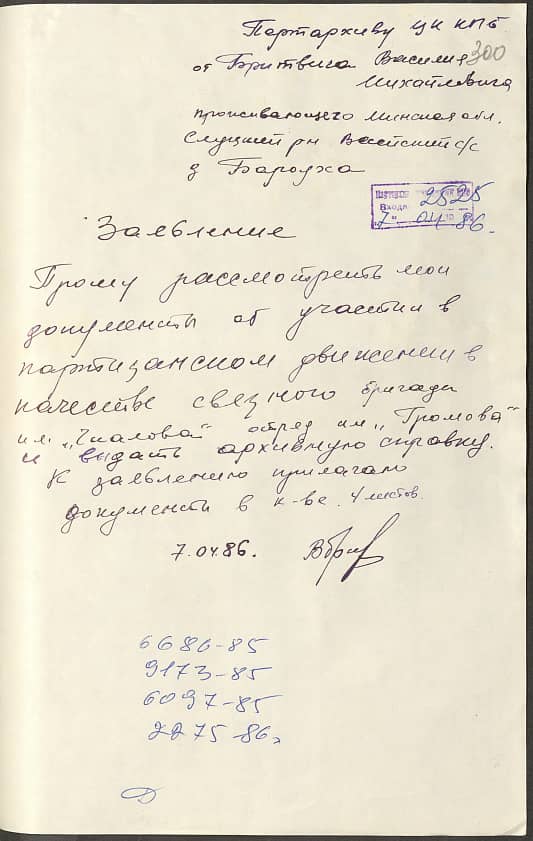 Партархиву ЦК КПБ
300
от Бритвича Василия
Михайловича
проживающего Минская обл.
Слуцкий рн Весейский с/с
д
2525
Входя
"7" 04 86.
Заявление
Прошу рассмотреть мои
документы об участии в
партизанском движении в
качестве связного бригады
им. "Чкалова" отряд им "Громова"
и выдать архивную справку.
К заявлению прилагаю
документы в к-ве. 4 листов.
7.04.86.
6686-85
9173-85
6097-85
2275-86